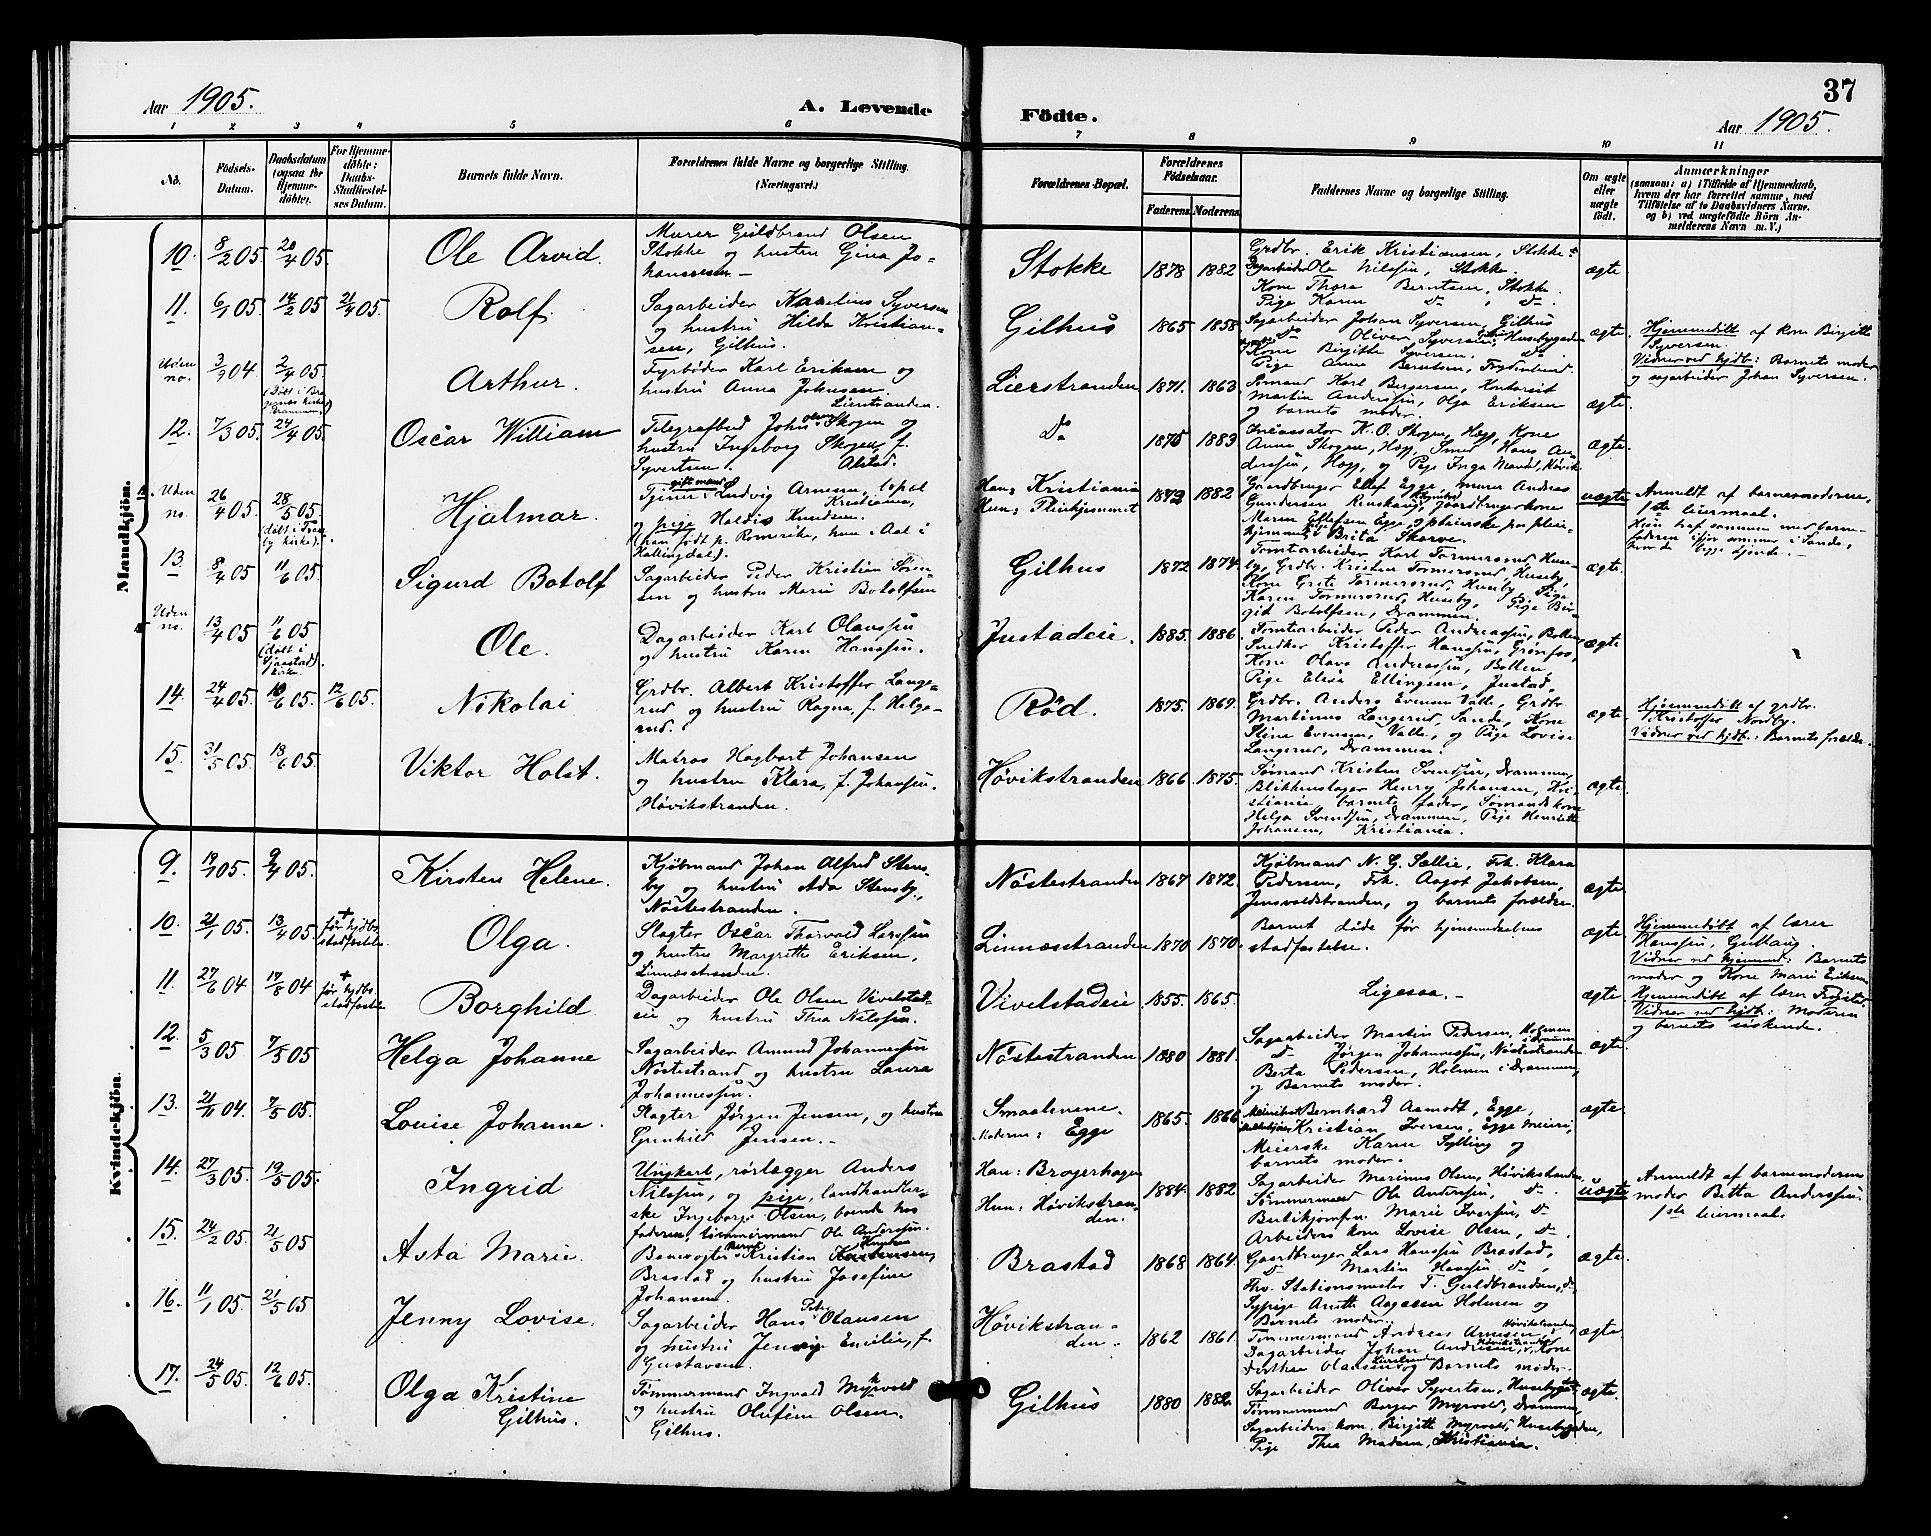 37
Aar 1905.
A. Levende
Födte.
Aar 1905.
1 2 3 4 5 6 7 8 9 10 11
No.
Födsels-Datum.
Daabsdatum (ogsaa for Hjemme-döbte).
For Hjemme-döbte: Daabs-Stadfæstel-ses Datum.
Barnets fulde Navn.
Forældrenes fulde Navne og borgerlige Stilling. (Næringsvei.)
Forældrenes Bopæl.
Forældrenes Födselsaar.
Faderens. Moderens.
Faddernes Navne og borgerlige Stilling.
Om ægte eller uægte födt.
Anmærkninger
(saasom: a) i Tilfælde af Hjemmedaab, hvem der har forrettet samme, med Tilföielse af to Daabsvidners Navne. og b) ved uægtefödte Börn An-melderens Navn m. V.)
Mandkjön.
10. 8/2 05. 20/4 05. Ole Arvid.
Murer Guldbrand Olsen
Stokke og hustru Gina Jo-
hannessen. –
Stokke 1878 1882
Grdbr. Erik Kristiansen, Stokke
Ole Nilssen, Stokke.
Kone Thora Berntsen, Stokke.
Pige Karen do, do.
ægte
11. 6/1 05. 12/2 05 21/4 05. Rolf.
Sagarbeider Karelius Syversen
og hustru Hilda Kristian-
sen, Gilhus.
Gilhus 1865 1858
Sagarbeider Johan Syversen, Gilhus
do Oliver Syversen, Husebygaden
Kone Birgitte Syversen. do
Pige Anna Berntsen,
ægte.
Hjemmedöbt af kone Birgitte
Syversen.
Vidner ved hjdb: Barnets moder
og sagarbeider Johan Syversen.
Uden no. 3/9 04. 2/4 05.
(Döbt i Bra-
gernæs kirke
Drammen.)
Arthur.
Fyrböder Karl Eriksen og
hustru Anna Johnsen.
Lierstranden.
Lierstranden 1871. 1863.
Sömand Karl Bergersen, Kontorist
Martin Anderssen, Olga Eriksen
og barnets moder.
ægte.
12. 7/3 05. 24/4 05. Oscar William
Telegrafbud John Skogen og
hustru Ingeborg Skogen, f.
Syvertsen.
do 1875 1883
Incassator K. O. Skogen, Kone
Anna Skogen, Smed Hans An-
derssen, og Pige Inga
ægte.
Uden no. 26/4 05. 28/5 05.
Hjalmar.
gift mand
Tjener Ludvig Arnesen, bopæl
Kristiania,
og pige Haldis Knudsen.
(han födt p. Romerike, hun i Aal i
Hallingdal).
Han: Kristiania
Hun: Pleiehjemmet
1873 1882
Gaardbruger Ellef Egge, murer Andreas
Gundersen gaardbrugerkone
Maren Ellefsen Egge, og pleierske paa pleie-
hjemmet Brita Skarve.
uægte.
Anmeldt af barnemoderen,
1ste leiermaal.
Hun traf sammen med barne-
faderen ifjor sommer i Sande,
hvor de begge tjente. –
13. 8/4 05 11/6 05. Sigurd Botolf
Sagarbeider Peder Kristian
og hustru Marie Botolfsen
Gilhus 1872 1874.
Tomtarbeider Karl Tormersrud, Huse-
by, Grdbr. Kristen Tormersrud, Huseby,
Kone Grete Tormersrud, Huseby, Pige
Karen Tormersrud, Huseby, Pige Bir-
git Botolfsen, Drammen.
ægte.
Uden no. 13/4 05 11/6 05
(döbt i
Sjaastad
kirke
Ole.
Dagarbeider Karl Olavssen
og hustru Karen Hanssen.
Justadeie. 1885. 1886.
Tomtarbeider Peder Andreassen, Bolten
Snedker Kristoffer Hanssen, Grönfos,
Kone Olava Andreassen, Bolten.
Pige Elise Ellingsen, Justad.
ægte
14. 24/4 05. 10/6 05. 12/6 05. Nikolai
Grdbr. Albert Kristoffer Lange-
rud og hustru Ragna, f. Helge-
rud.
Röd. 1875. 1869.
Grdbr. Anders Evensen Valle, Grdbr.
Martinus Langerud, Sande, Kone
Stine Evensen, Valle, og Pige Lovise
Langerud, Drammen.
ægte.
Hjemmedöbt af grdbr.
Kristoffer Nordby.
Vidner ved hjdb.: Barnets forældre.
15. 31/5 05. 18/6 05. Viktor Holst.
Matros Hagbart Johansen
og hustru Klara, f. Johansen.
Hövikstranden.
Hövikstranden 1866. 1875.
Sömand Kristen Svendsen, Drammen,
Blikkenslager Henry Johansen, Kri-
stiania, barnets fader, Sömands kone
Helga Svendsen, Drammen, Pige Henriette
Johansen, Kristiania.
ægte.
Kvindekjön.
9. 19/1 05. 9/4 05. Kirsten Helene.
Kjöbmand Johan Alfred Stens-
by og hustru Ada Stensby,
Nöstestranden.
Nöstestranden 1867 1872.
Kjöbmand N. G. Sællie, Frk. Klara
Pedersen, Frk. Aagot Jakobsen,
Jensvoldstranden, og barnets forældre.
ægte.
10. 21/1 05. 13/4 05. + för hjdbs. stadfæstelse Olga.
Slagter Oscar Thorvald Larssen
og hustru Margrethe Eriksen,
Linnæsstranden.
Linnæsstranden 1870 1870.
Barnet döde för hjemmedaabens
stadfæstelse.
ægte.
Hjemmedöbt af lærer
Hanssen, Gullaug.
Vidner ved hjemmed: Barnets
moder og Kone Marie Eriksen
11. 27/6 04 17/8 04 + för hjdbs. stadfæstelse Borghild
Dagarbeider Ole Olsen Vivelstad-
eie og hustru Thea Nilssen.
Vivelstadeie 1855. 1865.
Ligesaa. –
ægte.
Hjemmedöbt af lærer
Vidner ved hjdb: Moderen
og barnets söskende.
12. 5/3 05 7/5 05. Helga Johanne
Sagarbeider Amund Johannessen
Nöstestrand og hustru Laura
Johannessen.
Nöstestranden 1880 1881.
Sagarbeider Martin Pedersen, Holmen i Drammen
do Jörgen Johannessen, Nöstestranden
Berta Pedersen, Holmen i Drammen,
og Barnets moder.
ægte.
13. 21/11 04. 7/5 05. Lovise Johanne.
Slagter Jörgen Jensen, og hustru
Gunhild Jensen. –
Smaalenene.
Moderen: Egge
1865. 1866.
Bernhard Aamodt, Egge,
Kristian Iversen, Egge Meieri,
Meierske Karen Sylling og
barnets moder.
ægte.
14. 27/3 05. 19/5 05. Ingrid
Ungkarl, rörlægger Anders
Nilssen, og pige, landhandler-
ske Ingeborg Olsen, boende hos
faderen, tömmermand Ole Anderssen.
Han: Bragerhagen
Hun: Hövikstran-
den.
1884. 1882
Sagarbeider Marinus Olsen, Hövikstranden,
Tömmermand Ole Anderssen, do.
Butikjomfru Marie Iverssen, do
Arbeiders kone Lovise Olsen, do.
uægte
Anmeldt af barnemoderens
moder Betta Anderssen.
1ste leiermaal.
15. 24/2 05. 21/5 05 Asta Marie.
Banevogter Bernt Kristian
Brastad og hustru Josefine
Johansen.
Brastad 1868 1864.
Gaardbruger Lars Hanssen Brastad,
do Martin Hanssen do,
Fhv. Stationsmester T. Guldbrandsen, do,
Sypige Anette Aagesen Holmen og
Barnets moder.
ægte.
16. 11/1 05. 21/5 05 Jenny Lovise.
Sagarbeider Hans Petter Olaussen
og hustru Jenny Emilie, f.
Gustavsen.
Hövikstran-
den. 1862 1861.
Tömmermand Andreas Arnesen, Hövikstranden,
Dagarbeider Johan Andresen, Kone
Berthea Olaussen og Barnets moder.
ægte.
17. 24/5 05. 12/6 05. Olga Kristine
Gilhus.
Tömmermand Ingvald Myrvold
og hustru Olufine Olsen.
Gilhus.
Gilhus 1880 1882.
Sagarbeider Oliver Syvertsen, Husebygaden,
Tömmermand Borger Myrvold, Drammen,
Sagarbeiders kone Birgitte Myrvold, Husebygaden,
Pige Thea Madsen, Kristiania.
ægte.